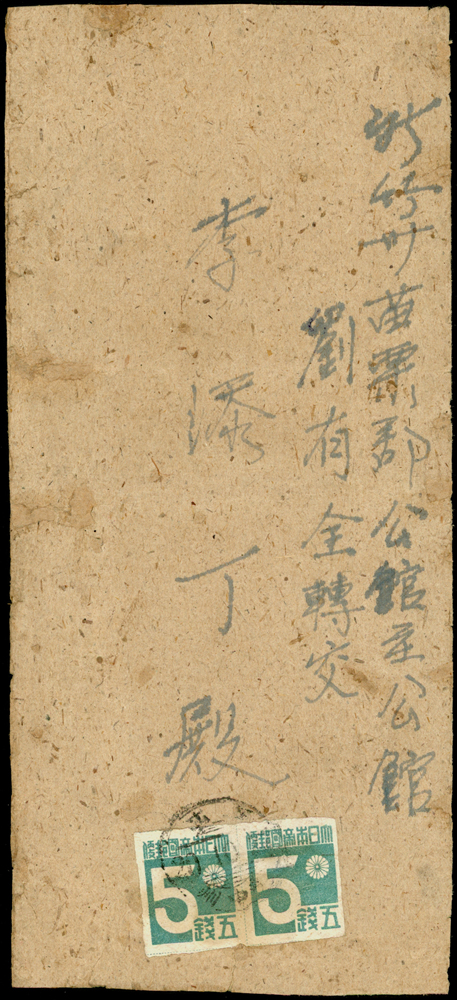 新竹州苗栗郡公館庄公館
劉有全轉交
李添丁殿
大日本帝國郵便
5
五錢
大日本帝國郵便
5
五錢